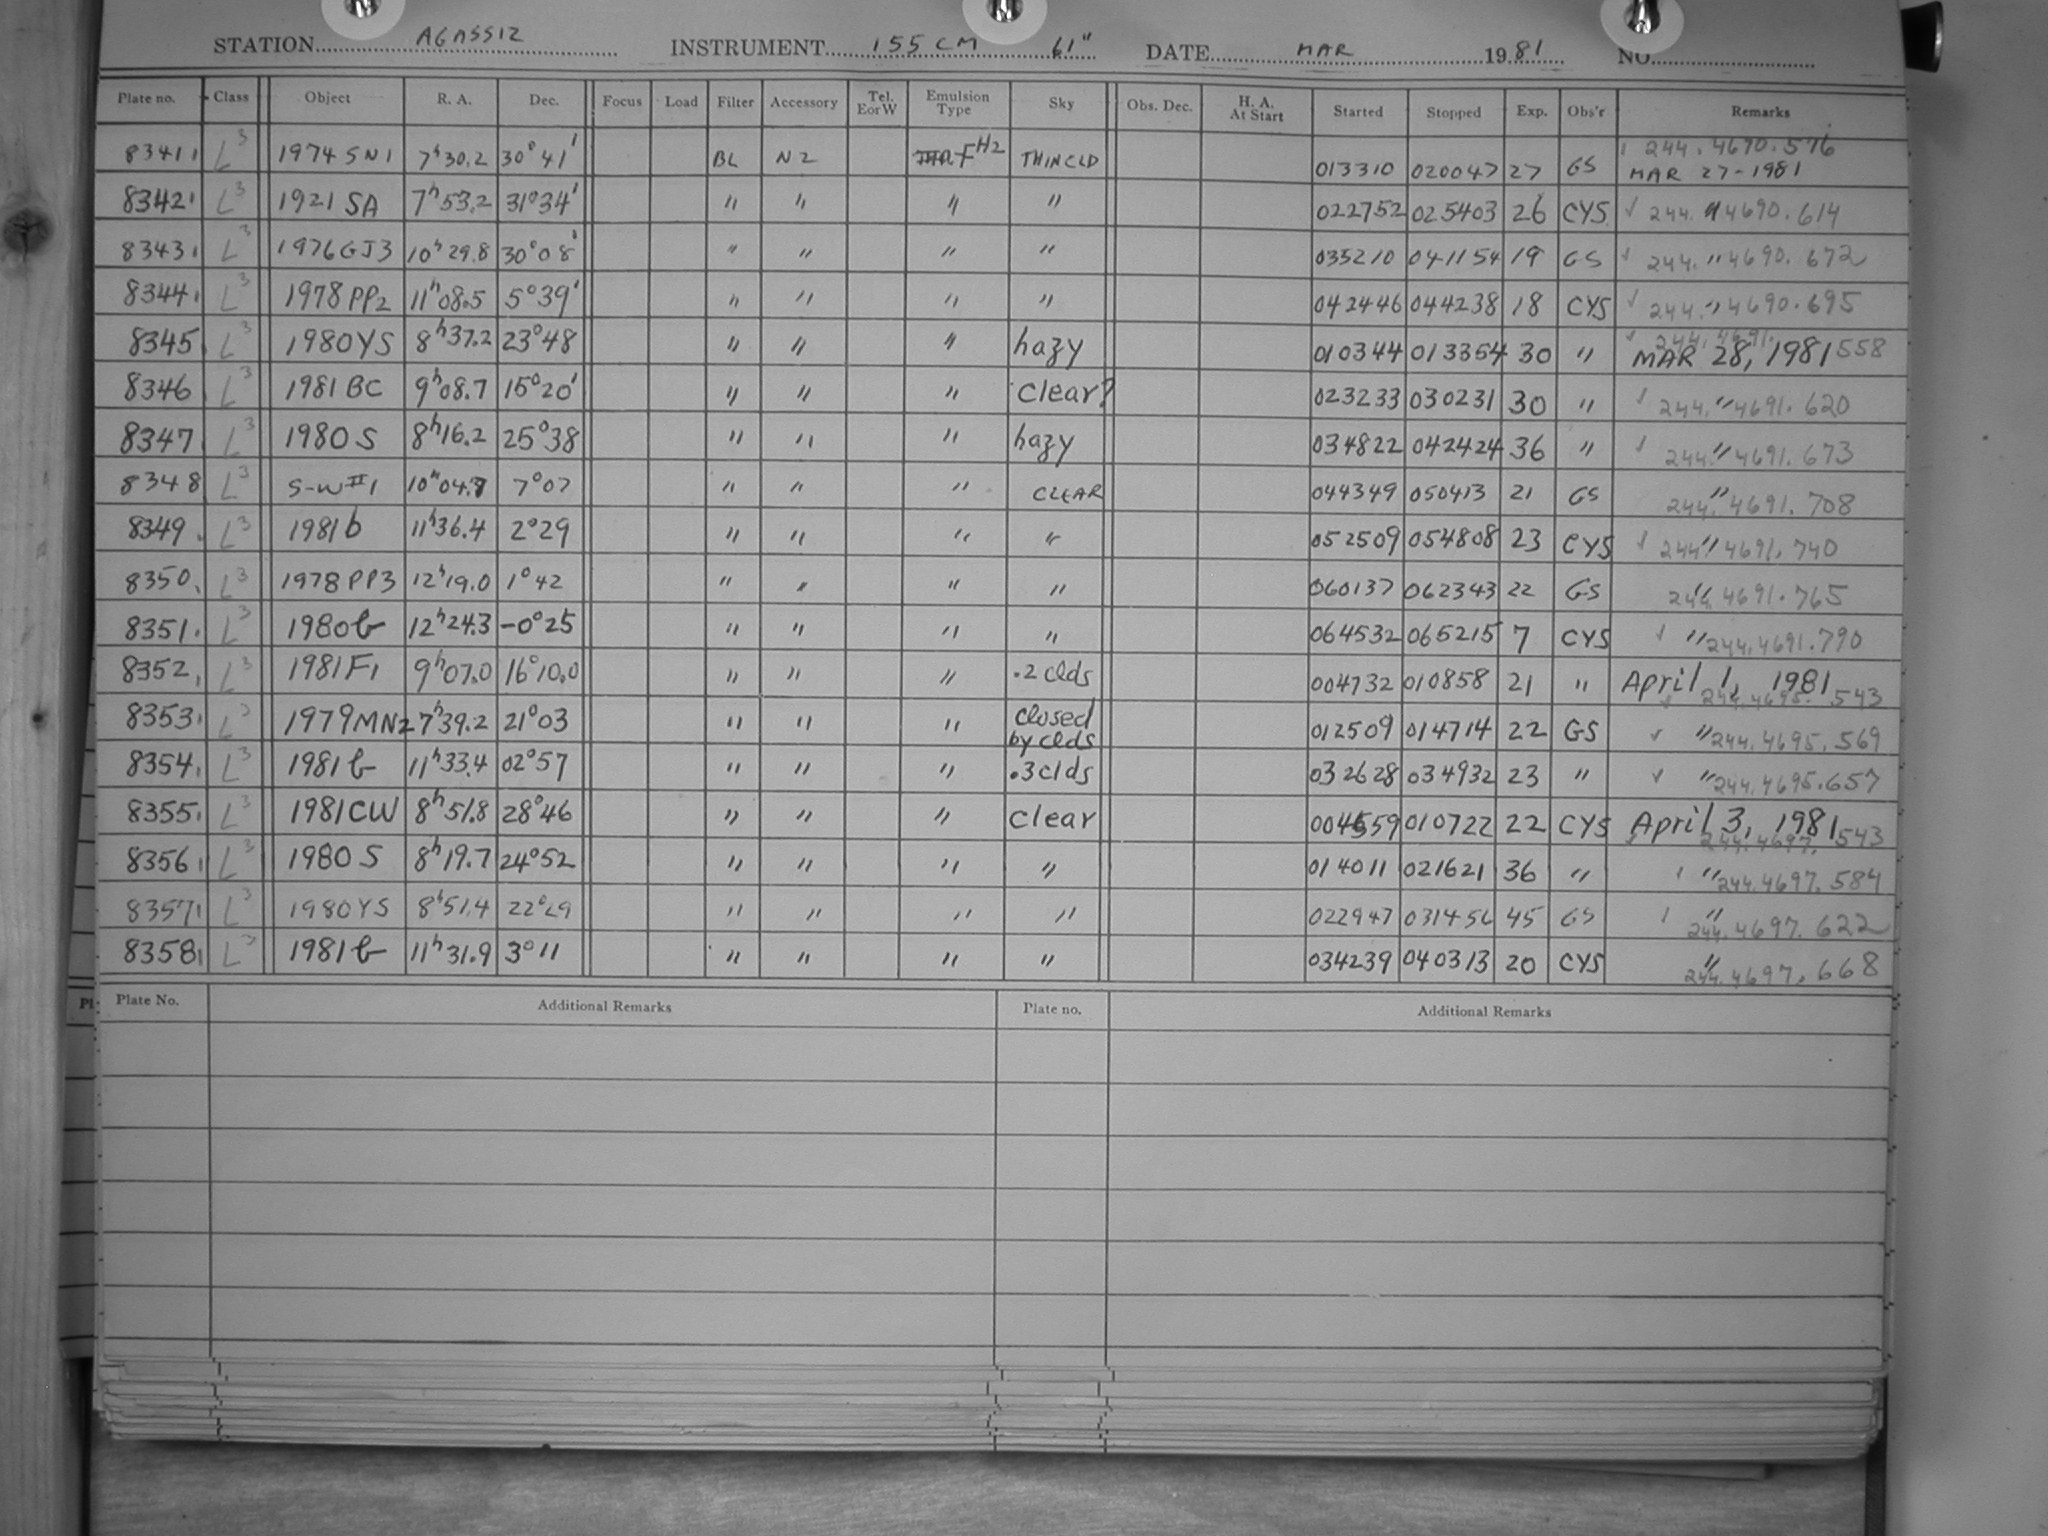 STATION AGASSIZ INSTRUMENT 155 CM 61" DATE MAR 1981 NO.
Plate no. Class Object R. A. Dec. Focus Load Filter Accessory Tel. E or W Emulsion Type Sky Obs. Dec. H. A. At Start Started Stopped Exp. Obs'r Remarks
8341 L3 1974 SN1 7h30.2 30°41' BL N2 H2 THIN CLD 013310 020047 27 GS 244.4690.576 MAR 27-1981
8342 L3 1921 SA 7h53.2 31°34' " " " " 022752 025403 26 CYS ✓ 244.4690.614
8343 L3 1976 GJ3 10h29.8 30°08' " " " " 035210 041154 19 GS ✓ 244." 4690.672
8344 L3 1978 PP2 11h08.5 5°39' " " " " 042446 044238 18 CYS ✓ 244." 4690.695
8345 L3 1980YS 8h37.2 23°48 " " " hazy 010344 013354 30 " ✓ 244.4691. MAR 28, 1981 558
8346 L3 1981 BC 9h08.7 15°20' " " " clear? 023233 030231 30 " ✓ 244." 4691.620
8347 L3 1980 S 8h16.2 25°38 " " " hazy 034822 042424 36 " ✓ 244." 4691.673
8348 L3 S-W #1 7°07 " " " CLEAR 044349 050413 21 GS 244." 4691.708
8349 L3 1981 b 11h36.4 2°29 " " " " 052509 054808 23 CYS ✓ 244." 4691.740
8350 L3 1978 PP3 12h19.0 1°42 " " " " 060137 062343 22 GS 244." 4691.765
8351 L3 1980 b 12h24.3 -0°25 " " " " 064532 065215 7 CYS ✓ " 244.4691.790
8352 L3 1981 F1 9h07.0 16°10.0 " " " .2 clds 004732 010858 21 " April 1, 1981 ✓ 244.4695.543
8353 L3 1979MN2 7h39.2 21°03 " " " closed by clds 012509 014714 22 GS ✓ " 244.4695.569
8354 L3 1981 b 11h33.4 02°57 " " " .3 clds 032628 034932 23 " ✓ " 244.4695.657
8355 L3 1981CW 8h51.8 28°46 " " " clear 004559 010722 22 CYS April 3, 1981 ✓ 244.4697.543
8356 L3 1980 S 8h19.7 24°52 " " " " 014011 021621 36 " " 244.4697.584
8357 L3 1980YS 8h51.4 " " " " 022947 45 GS " 244.4697.622
8358 L3 1981 b 11h31.9 3°11 " " " " 034239 040313 20 CYS " 244.4697.668
Pl Plate No. Additional Remarks Plate no. Additional Remarks